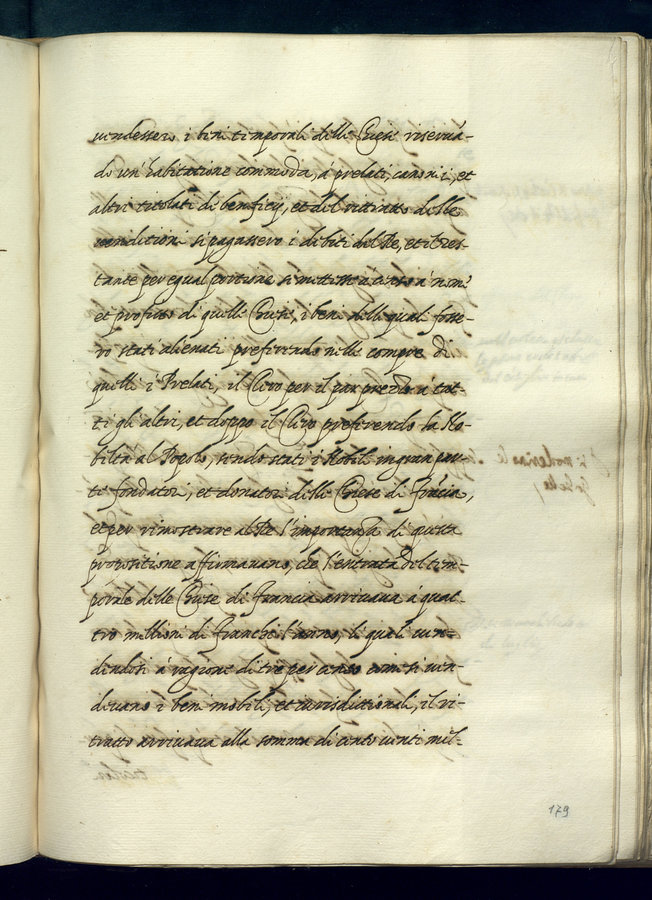 vendessero i beni temporali delle Chiese riservan-
do un'habitatione commoda, á prelati, canonici, et
altri titolati di beneficij, et del ritratto delle
venditioni si pagassero i debiti del Re, et il res-
tante per egual portione si mettesse à censo à nome
et profitto di quelle Chiese, i beni delle quali fosse-
ro stati alienati preferendo nelle compre di
quelli i Prelati, il Clero per il par prezzo à tut-
ti gli altri, et doppo il Clero preferendo la No-
biltà al Popolo, sendo stati i Nobili in gran par-
te fondatori, et donatori delle Chiese di francia,
et per rimostrare al Re l'importanza di questa
propositione affirmavano, che l'entrata del tem-
porale delle Chiese di francia arrivava á quat-
tro millioni di franchi l'anno, li quali ven-
dendosi à ragione di tre per cento come si ven-
devano i beni nobili, et iurisdictionali, il ri-
tratto arrivava alla somma di cento venti mil-
179